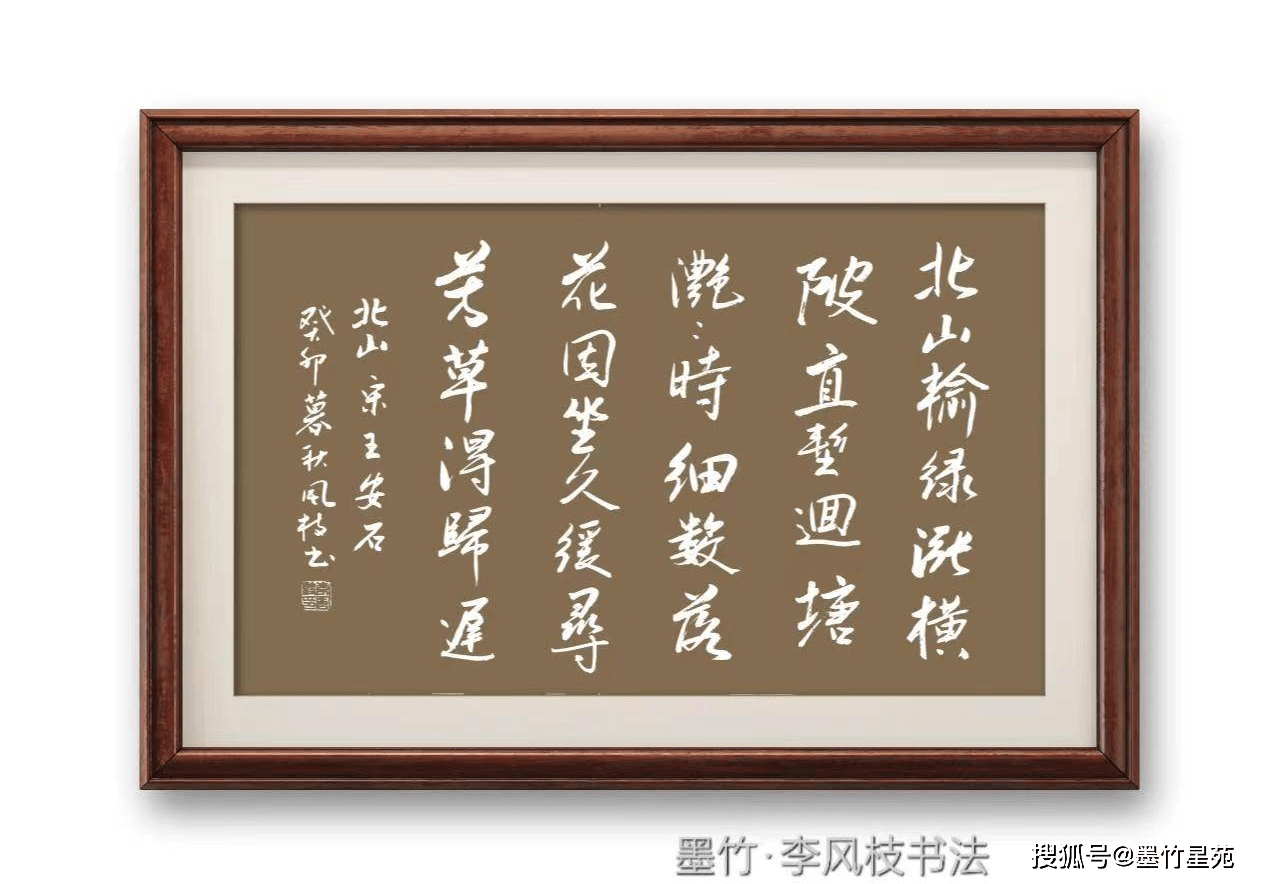 北山輸绿漲横
陂直塹迴塘
灧〻時细数落
花因坐久缓尋
芳草得歸遲
北山宋王安石
癸卯暮秋风枝书
墨竹·李风枝书法
搜狐号@墨竹星苑